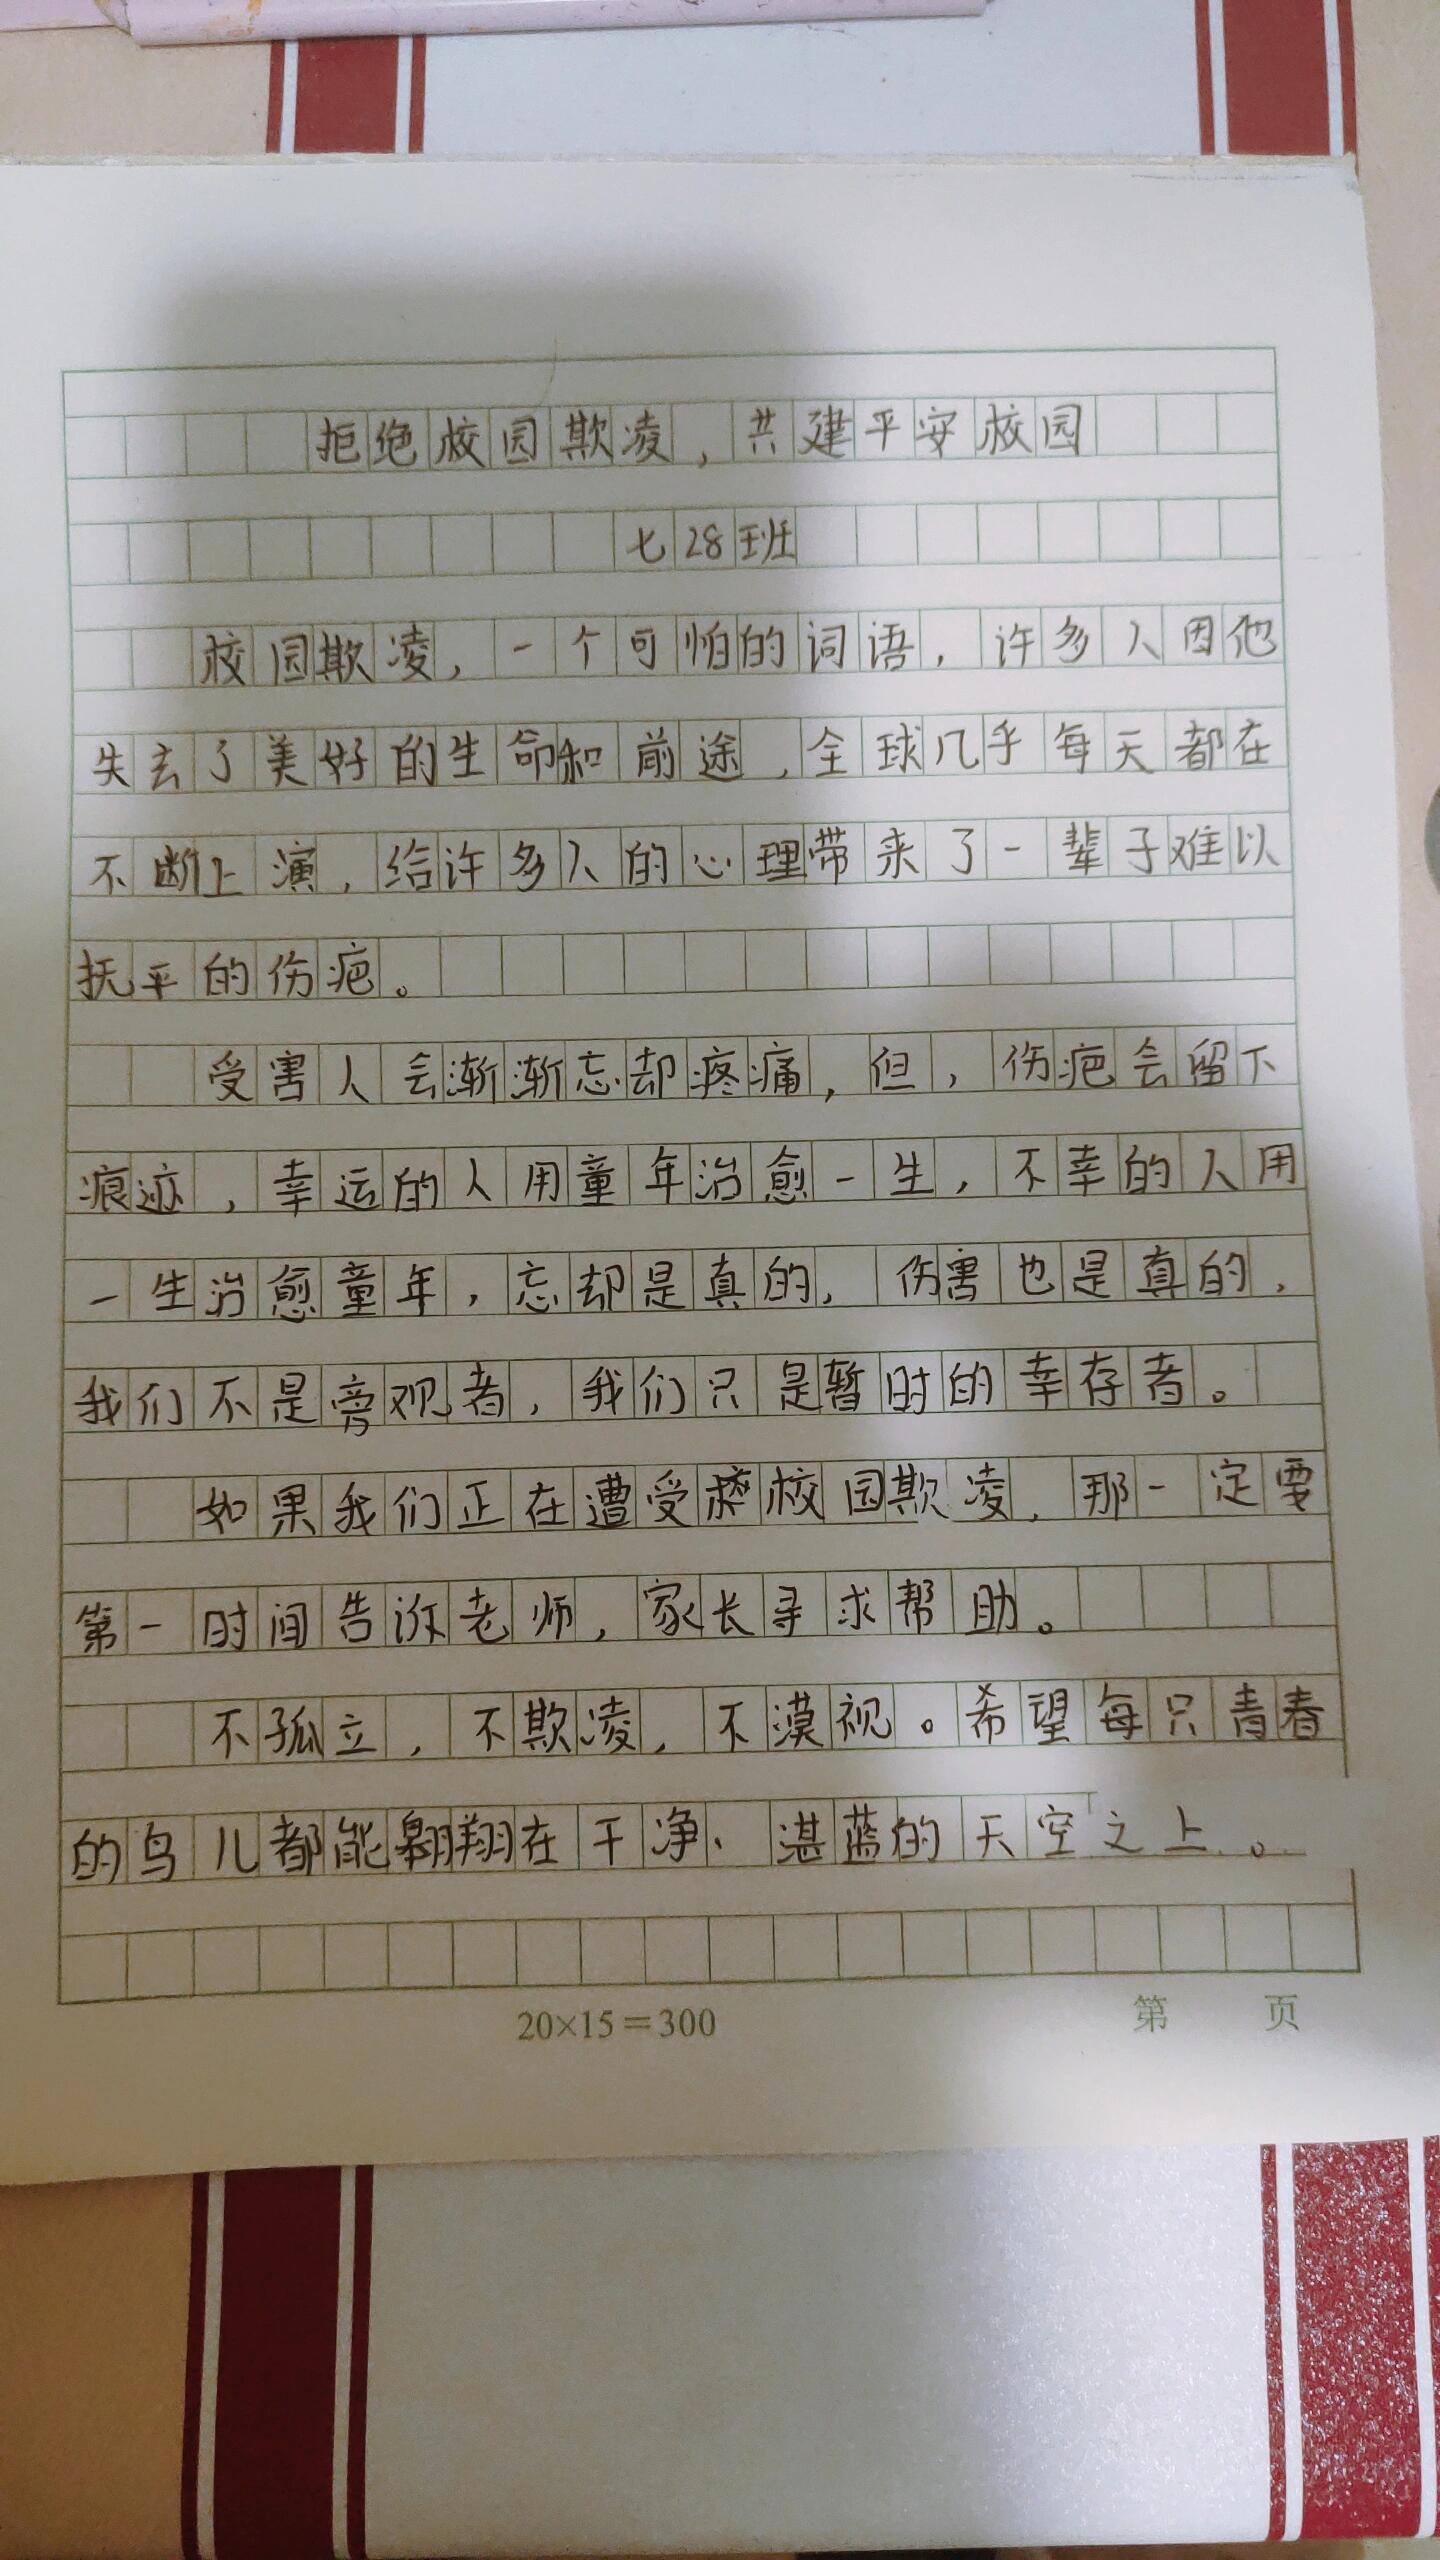 拒绝校园欺凌，共建平安校园
七28班
校园欺凌，一个可怕的词语，许多人因他
失去了美好的生命和前途，全球几乎每天都在
不断上演，给许多人的心理带来了一辈子难以
抚平的伤疤。
受害人会渐渐忘却疼痛，但，伤疤会留下
痕迹，幸运的人用童年治愈一生，不幸的人用
一生治愈童年，忘却是真的，伤害也是真的，
我们不是旁观者，我们只是暂时的幸存者。
如果我们正在遭受校园欺凌，那一定要
第一时间告诉老师，家长寻求帮助。
不孤立，不欺凌，不漠视。希望每只青春
的鸟儿都能翱翔在干净、湛蓝的天空之上。
20×15=300
第 页